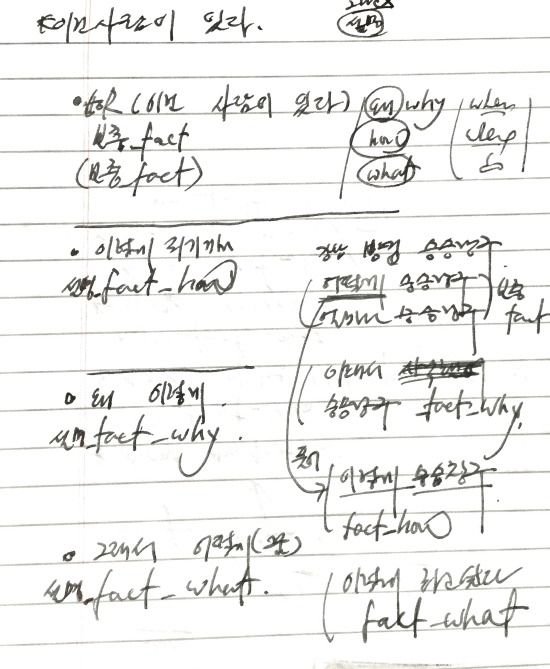 *이런사람이 있다.
설명
• 하나 (이런 사람이 있다) 왜 why when
보충_fact how
(보충_fact) what
• 이렇게 되기까지
설명_fact_how
승승장구
어떻게 승승장구 보충
승승장구 fact
이래서
승승장구 fact_why
• 왜 이렇게
설명_fact_why.
풀이
이렇게 승승장구
fact_how
• 그래서 어떻게(
설명_fact_what.
이렇게 하고있다
fact_what